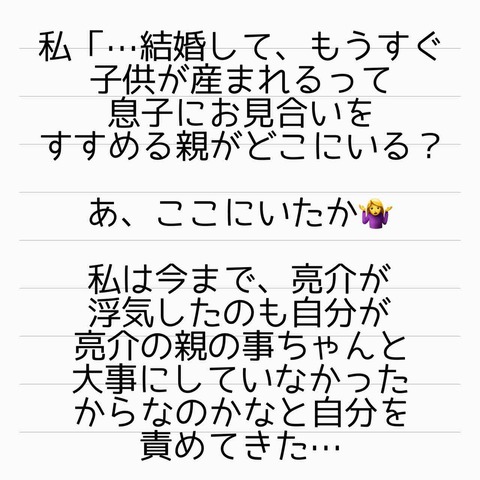 私「…結婚して、もうすぐ
子供が産まれるって
息子にお見合いを
すすめる親がどこにいる？
あ、ここにいたか🤷‍♀️
私は今まで、亮介が
浮気したのも自分が
亮介の親の事ちゃんと
大事にしていなかった
からなのかなと自分を
責めてきた…